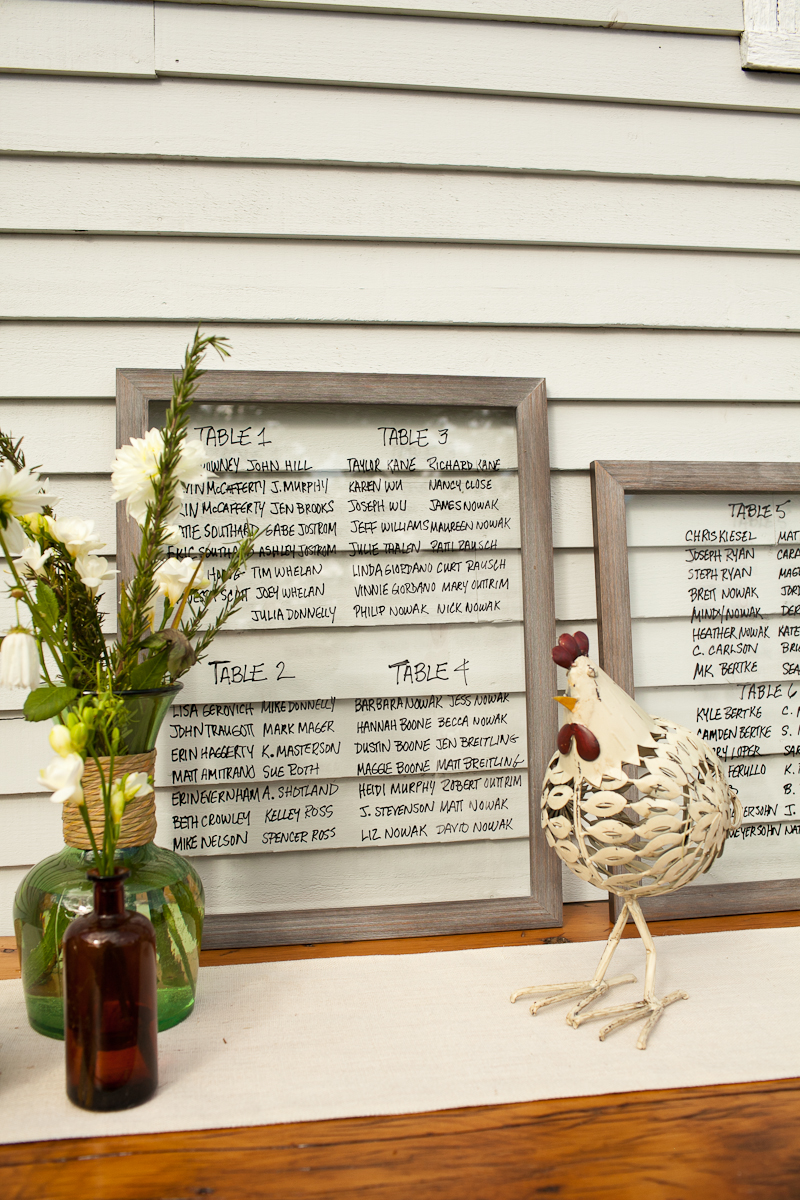 TABLE 1
JOHN HILL
McCAFFERTY J. MURPHY
McCAFFERTY JEN BROOKS
SOUTHARD GABE JOSTROM
ERIC SOUTHARD ASHLEY JOSTROM
TIM WHELAN
SCOTT JOEY WHELAN
JULIA DONNELLY
TABLE 3
TAYLOR KANE RICHARD KANE
KAREN WU NANCY CLOSE
JOSEPH WU JAMES NOWAK
JEFF WILLIAMS MAUREEN NOWAK
JULIE THALEN PATI RAUSCH
LINDA GIORDANO CURT RAUSCH
VINNIE GIORDANO MARY OUTTRIM
PHILIP NOWAK NICK NOWAK
TABLE 2
LISA GEROVICH MIKE DONNELLY
JOHN TRAUGOTT MARK MAGER
ERIN HAGGERTY K. MASTERSON
MATT AMITRANO SUE ROTH
ERIN EVERNHAM A. SHOTLAND
BETH CROWLEY KELLEY ROSS
MIKE NELSON SPENCER ROSS
TABLE 4
BARBARA NOWAK JESS NOWAK
HANNAH BOONE BECCA NOWAK
DUSTIN BOONE JEN BREITLING
MAGGIE BOONE MATT BREITLING
HEIDI MURPHY ROBERT OUTTRIM
J. STEVENSON MATT NOWAK
LIZ NOWAK DAVID NOWAK
TABLE 5
CHRIS KIESEL MAT
JOSEPH RYAN CARA
STEPH RYAN MAG
BRETT NOWAK JORD
MINDY NOWAK DER
HEATHER NOWAK KATE
C. CARLSON BRI
MK BERTKE SEA
TABLE 6
KYLE BERTKE C. M
CAMDEN BERTKE S. M
LOPER SAR
FERULLO K.
B.
J.
NAT